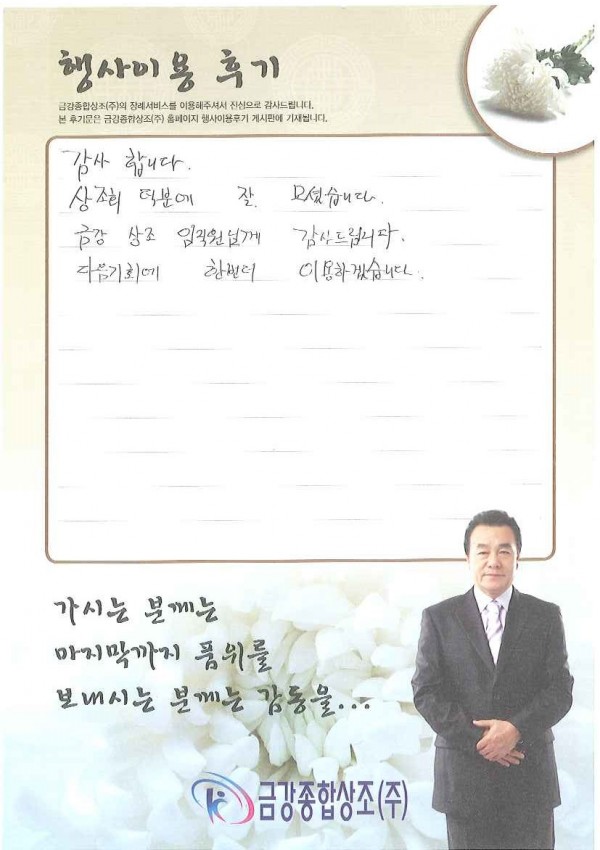 행사이용 후기
금강종합상조(주)의 장례서비스를 이용해주셔서 진심으로 감사드립니다.
본 후기문은 금강종합상조(주) 홈페이지 행사이용후기 게시판에 기재됩니다.
감사 합니다.
상조회 덕분에 잘. 모셨습니다.
금강 상조 임직원님께 감사드립니다.
다음기회에 한번더 이용하겠습니다.
가시는 분께는
마지막까지 품위를
보내시는 분께는 감동을...
금강종합상조(주)